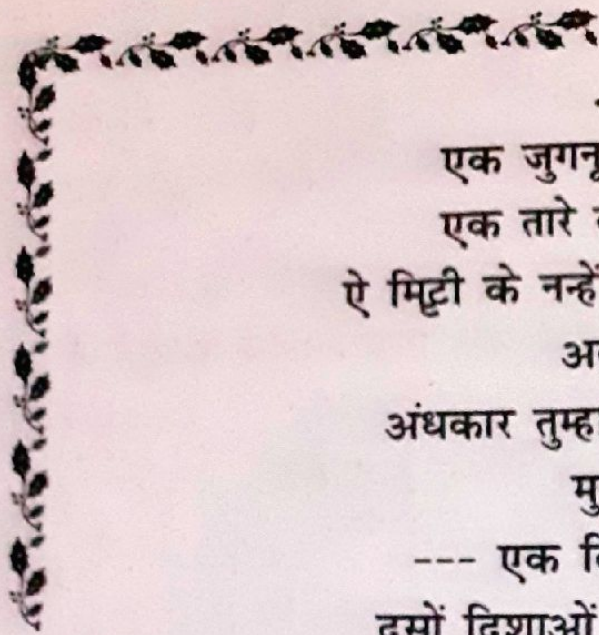 एक जुगनू
एक तारे
ऐ मिट्टी के नन्हें
अंधकार
--- एक
दसों दिशाओं